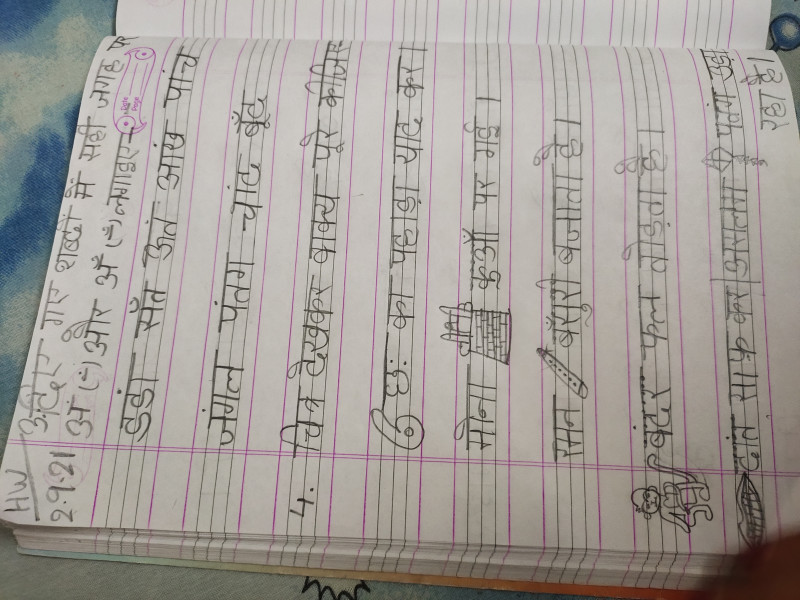 HW
2.9.21 दिए गए शब्दों में सही जगह पर
अं (ं) और अँ (ँ) लगाइए-
डंडा साँत अंत आंख पांच
जंगल पंतग चांद बूँद
4. चित्र देखकर वाक्य पूरे कीजिए
६ छः का पहाड़ा याद कर।
मोना कुआँ पर गई।
बाँसुरी बनाता है।
बंदर फल तोड़ता है।
दांत साफ कर। आसमा पतंग उड़
रहा है।